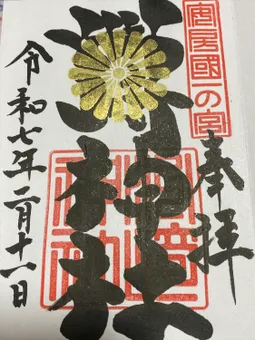 安房國一の宮
奉拝
洲崎神社
令和七年二月十一日